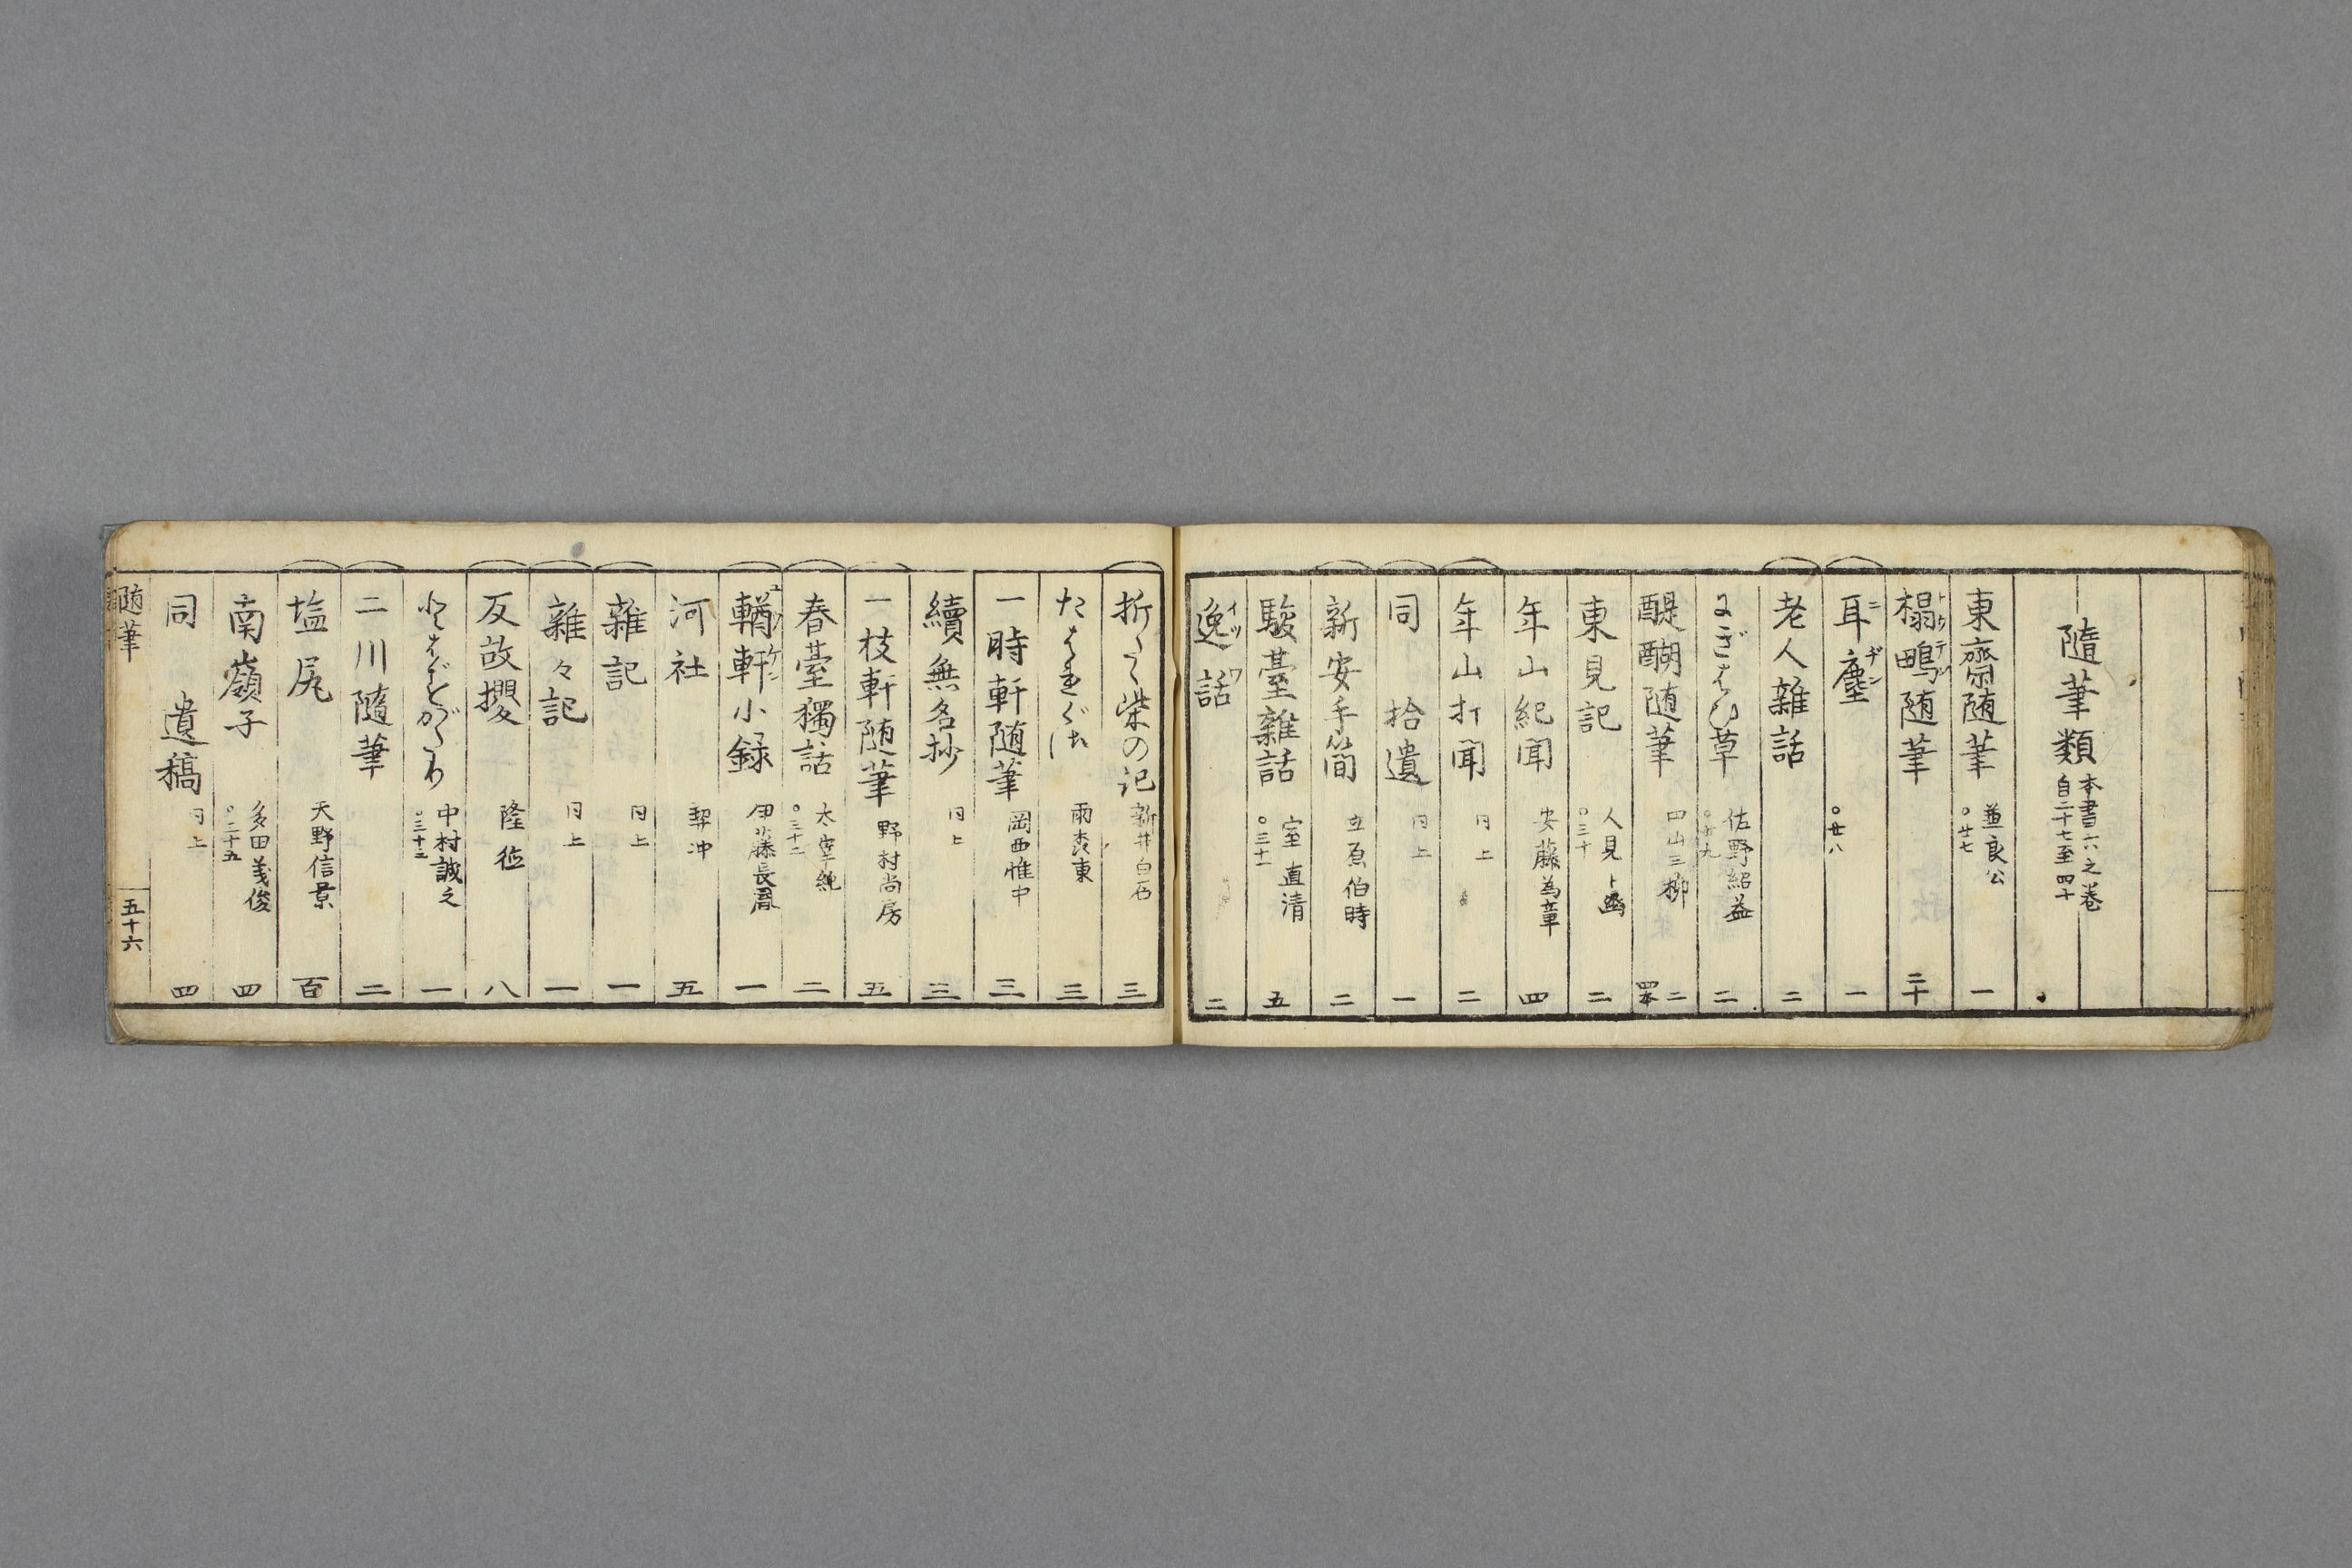 隨筆類 本書六之巻 自二十七至四十
東齋随筆 兼良公 ○廿七 一
榻鴫随筆 トウテツ 二十
耳塵 ニヂン ○廿八 一
老人雑話 二
にぎはひ草 佐野紹益 ○廿九 二
醍醐随筆 四山三柳 二 四本
東見記 人見卜幽 ○三十 二
年山紀聞 安藤為章 四
年山打聞 同上 二
同 拾遺 同上 一
新安手簡 立原伯時 二
駿臺雜話 室直清 ○三十一 五
逸話 イツワ 二
折たく柴の記 新井白石 三
たはれぐさ 雨森東 三
一時軒随筆 岡西惟中 三
續無名抄 同上 三
一枝軒随筆 野村尚房 五
春臺獨話 太宰純 ○三十二 二
輶軒小録 ユウケン 伊藤長胤 一
河社 契冲 五
雜記 同上 一
雜々記 同上 一
反故攖 隆 八
とはずがたり 中村誠之 ○三十三 一
二川隨筆 二
塩尻 天野信景 百
南嶺子 多田義俊 ○三十五 四
同 遺稿 同上 四
随筆 五十六